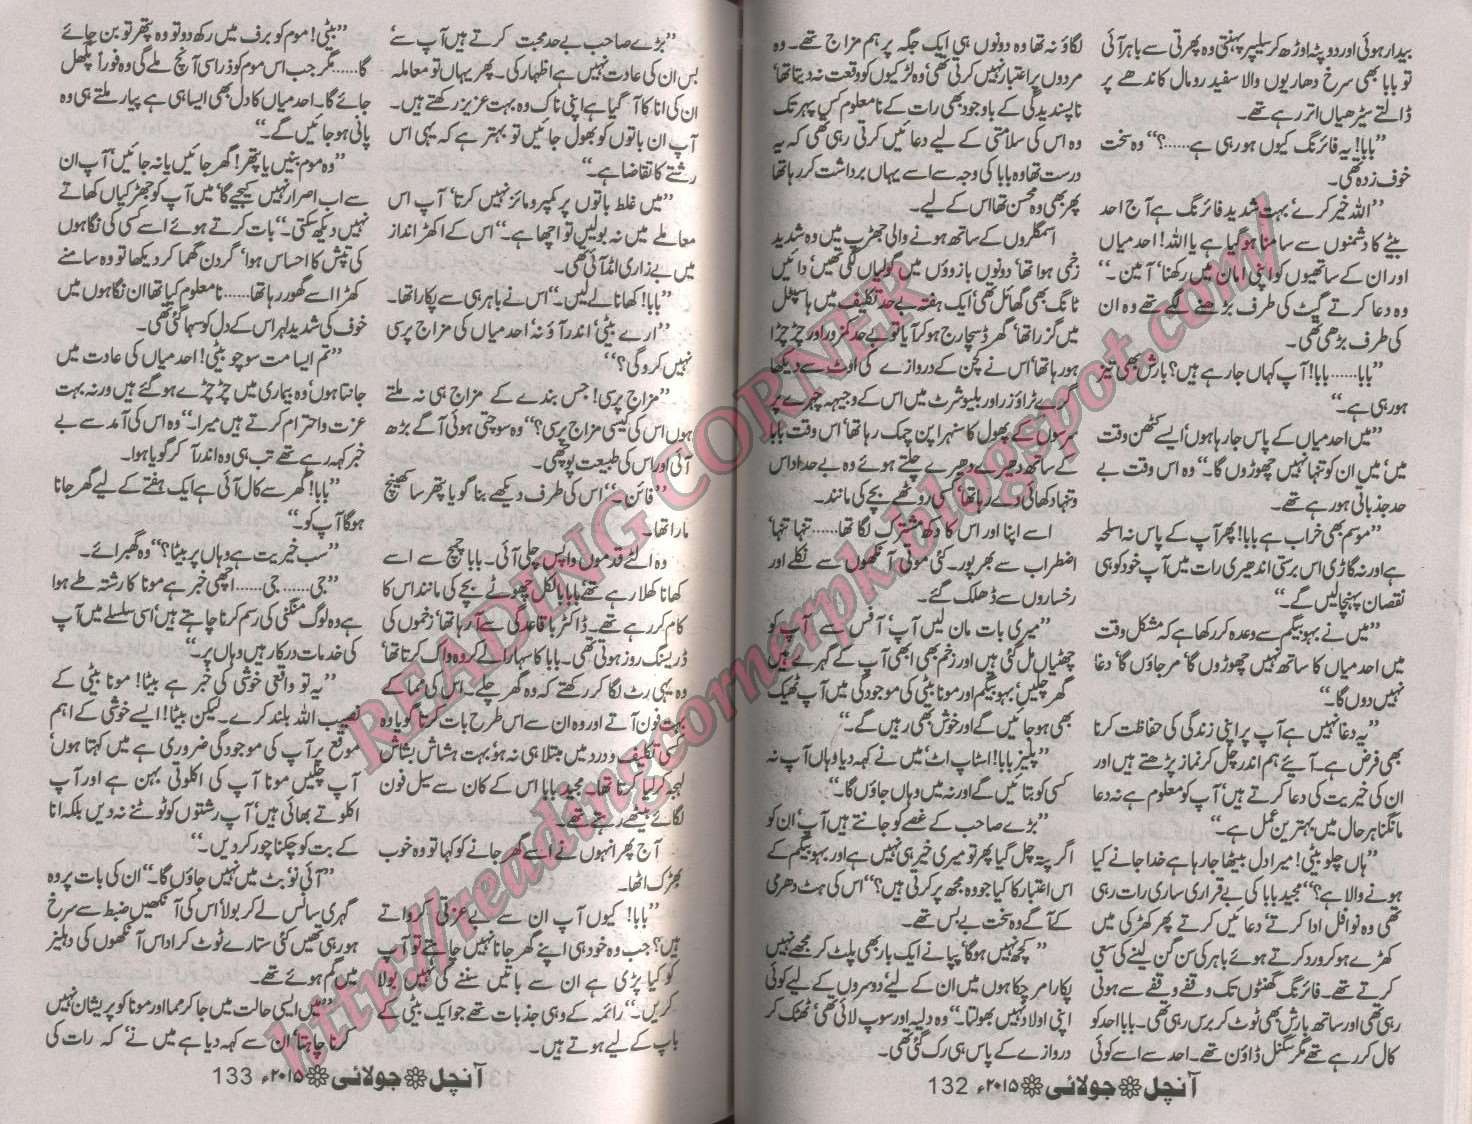 بیدار ہوئی اور دوپٹہ اوڑھ کر سلیپر پہنتی وہ پھرتی سے باہر آئی
تو بابا بھی سرخ دھاریوں والا سفید رومال کاندھے پر
ڈالتے سیڑھیاں اتر رہے تھے۔
”بابا! یہ فائرنگ کیوں ہو رہی ہے......؟“ وہ سخت
خوف زدہ تھی۔
”اللہ خیر کرے‘ بہت شدید فائرنگ ہے آج احد
بیٹے کا دشمنوں سے سامنا ہو گیا ہے یا اللہ! احد میاں
اور ان کے ساتھیوں کو اپنی امان میں رکھنا‘ آمین۔“
وہ دعا کرتے گیٹ کی طرف بڑھنے لگے تھے وہ ان
کی طرف بڑھی تھی۔
”بابا...... بابا! آپ کہاں جا رہے ہیں؟ بارش بھی تیز
ہو رہی ہے۔“
”میں احد میاں کے پاس جا رہا ہوں‘ ایسے کٹھن وقت
میں‘ میں ان کو تنہا نہیں چھوڑوں گا۔“ وہ اس وقت بے
حد جذباتی ہو رہے تھے۔
”موسم بھی خراب ہے بابا! پھر آپ کے پاس نہ اسلحہ
ہے اور نہ گاڑی اس برستی اندھیری رات میں آپ خود کو ہی
نقصان پہنچا لیں گے۔“
”میں نے بہو بیگم سے وعدہ کر رکھا ہے کہ مشکل وقت
میں احد میاں کا ساتھ نہیں چھوڑوں گا‘ مر جاؤں گا‘ دغا
نہیں دوں گا۔“
”یہ دغا نہیں ہے آپ پر اپنی زندگی کی حفاظت کرنا
بھی فرض ہے۔ آیئے ہم اندر چل کر نماز پڑھتے ہیں اور
ان کی خیریت کی دعا کرتے ہیں‘ آپ کو معلوم ہے نہ دعا
مانگنا ہر حال میں بہترین عمل ہے۔“
”ہاں چلو بیٹی! میرا دل بیٹھا جا رہا ہے خدا جانے کیا
ہونے والا ہے؟“ مجید بابا کی بے قراری ساری رات رہی
تھی وہ نوافل ادا کرتے‘ دعائیں کرتے پھر کھڑکی میں
کھڑے ہو کر ورد کرتے ہوئے باہر کی سن گن لینے کی سعی
کرتے تھے۔ فائرنگ گھنٹوں تک وقفے وقفے سے ہوتی
رہی تھی اور ساتھ بارش بھی ٹوٹ کر برس رہی تھی۔ بابا احد کو
کال کر رہے تھے مگر سگنل ڈاؤن تھے۔ احد سے اسے کوئی
لگاؤ نہ تھا وہ دونوں ہی ایک جگہ پر ہم مزاج تھے۔ وہ
مردوں پر اعتبار نہیں کرتی تھی‘ وہ لڑکیوں کو وقعت نہ دیتا تھا‘
ناپسندیدگی کے باوجود بھی رات کے نامعلوم کس پہر تک
وہ اس کی سلامتی کے لیے دعائیں کرتی رہی تھی کہ یہ
درست تھا وہ بابا کی وجہ سے اسے یہاں برداشت کر رہا تھا
پھر بھی وہ محسن تھا اس کے لیے۔
اسمگلروں کے ساتھ ہونے والی جھڑپ میں وہ شدید
زخمی ہوا تھا‘ دونوں بازوؤں میں گولیاں لگی تھیں‘ دائیں
ٹانگ بھی گھائل تھی‘ ایک ہفتہ بے حد تکلیف میں ہاسپٹل
میں گزرا تھا‘ گھر ڈسچارج ہو کر آیا تو بے حد کمزور اور چڑچڑا
ہو رہا تھا‘ اس نے کچن کے دروازے کی اوٹ سے دیکھا
گرے ٹراؤزر اور بلیو شرٹ میں اس کے وجیہہ چہرے پر
سرسوں کے پھول کا سنہرا پن چمک رہا تھا‘ اس وقت بابا
کے ساتھ دھیرے دھیرے چلتے ہوئے وہ بے حد اداس
و تنہا دکھائی دے رہا تھا‘ کسی روٹھے بچے کی مانند۔
اسے اپنا اور اس کا دکھ مشترک لگا تھا...... تنہا تنہا‘
اضطراب سے بھرپور۔ کئی موتی آنکھوں سے نکلے اور
رخساروں سے ڈھلک گئے۔
”میری بات مان لیں آپ‘ آفس سے آپ کو
چھٹیاں مل گئی ہیں اور زخم بھی ابھی آپ کے گہرے ہیں
گھر چلیں‘ بہو بیگم اور مونا بیٹی کی موجودگی میں آپ ٹھیک
بھی ہو جائیں گے اور خوش بھی رہیں گے۔“
”پلیز بابا! اسٹاپ اٹ‘ میں نے کہہ دیا وہاں آپ نہ
کسی کو بتائیں گے اور نہ میں وہاں جاؤں گا۔“
”بڑے صاحب کے غصے کو جانتے ہیں آپ‘ ان کو
اگر پتہ چل گیا پھر تو میری خیر ہی نہیں ہے اور بہو بیگم کے
اس اعتبار کا کیا جو وہ مجھ پر کرتی ہیں؟“ اس کی ہٹ دھرمی
کے آگے وہ سخت بے بس تھے۔
”کچھ نہیں ہوگا‘ پپا نے ایک بار بھی پلٹ کر مجھے نہیں
پکارا مر چکا ہوں میں ان کے لیے‘ دوسروں کے لیے کوئی
اپنی اولاد نہیں بھولتا۔“ وہ دلیہ اور سوپ لائی تھی‘ ٹھٹک کر
دروازے کے پاس ہی رک گئی تھی۔
آنچل ❁ جولائی ❁ ۲۰۱۵ء 132
”بڑے صاحب بے حد محبت کرتے ہیں آپ سے‘
بس ان کی عادت نہیں ہے اظہار کی۔ پھر یہاں تو معاملہ
ان کی انا کا آ گیا ہے اپنی ناک وہ بہت عزیز رکھتے ہیں۔
آپ ان باتوں کو بھول جائیں تو بہتر ہے کہ یہی اس
رشتے کا تقاضا ہے۔“
”میں غلط باتوں پر کمپرومائز نہیں کرتا‘ آپ اس
معاملے میں نہ بولیں تو اچھا ہے۔“ اس کے اکھڑ انداز
میں بے زاری امڈ آئی تھی۔
”بابا! کھانا لے لیں۔“ اس نے باہر ہی سے پکارا تھا۔
”ارے بیٹی‘ اندر آؤ نہ‘ احد میاں کی مزاج پرسی
نہیں کرو گی؟“
”مزاج پرسی! جس بندے کے مزاج ہی نہ ملتے
ہوں اس کی کیسی مزاج پرسی؟“ وہ سوچتی ہوئی آگے بڑھ
آئی اور اس کی طبیعت پوچھی۔
”فائن۔“ اس کی طرف دیکھے بنا گویا پتھر سا کھینچ
مارا تھا۔
وہ الٹے قدموں واپس چلی آئی۔ بابا چمچ سے اسے
کھانا کھلا رہے تھے‘ بابا بالکل چھوٹے بچے کی مانند اس کا
کام کر رہے تھے۔ ڈاکٹر باقاعدگی سے آ رہا تھا‘ زخموں کی
ڈریسنگ روز ہوتی تھی۔ بابا کا سہارا لے کر وہ واک کرتا تھا‘
وہ یہی رٹ لگا کر رکھتے کہ وہ گھر چلے۔ اس کی مما کے
بہت فون آتے اور وہ ان سے اس طرح بات کرتا گویا وہ
کسی تکلیف و درد میں مبتلا ہی نہ ہو‘ بہت ہشاش بشاش
لہجہ کر لیا کرتا تھا۔ مجید بابا اس کے کان سے سیل فون
لگائے بیٹھے رہتے تھے۔
آج پھر انہوں نے اسے گھر جانے کو کہا تو وہ خوب
بھڑک اٹھا۔
”بابا! کیوں آپ ان سے بے عزتی کرواتے
ہیں؟ جب وہ خود ہی اپنے گھر جانا نہیں چاہتے تو آپ
کو کیا پڑی ہے ان سے باتیں سننے کی نہیں بولا
کریں۔“ رائمہ کے وہی جذبات تھے جو ایک بیٹی کے
باپ کے لیے ہوتے ہیں۔
”بیٹی! موم کو برف میں رکھ دو تو وہ پتھر تو بن جائے
گا...... مگر جب اس موم کو ذرا سی آنچ ملے گی وہ فوراً پگھل
جائے گا۔ احد میاں کا دل بھی ایسا ہی ہے پیار ملتے ہی وہ
پانی ہو جائیں گے۔“
”وہ موم بنیں یا پتھر! گھر جائیں یا نہ جائیں‘ آپ ان
سے اب اصرار نہیں کیجیے گا‘ میں آپ کو جھڑکیاں کھاتے
نہیں دیکھ سکتی۔“ بات کرتے ہوئے اسے کسی کی نگاہوں
کی تپش کا احساس ہوا‘ گردن گھما کر دیکھا تو وہ سامنے
کھڑا اسے گھور رہا تھا...... نامعلوم کیا تھا ان نگاہوں میں
خوف کی شدید لہر اس کے دل کو سہما گئی تھی۔
”تم ایسا مت سوچو بیٹی! احد میاں کی عادت میں
جانتا ہوں‘ وہ بیماری میں چڑچڑے ہو گئے ہیں ورنہ بہت
عزت و احترام کرتے ہیں میرا۔“ وہ اس کی آمد سے بے
خبر کہہ رہے تھے تب ہی وہ اندر آ کر گویا ہوا۔
”بابا! گھر سے کال آئی ہے ایک ہفتے کے لیے گھر جانا
ہوگا آپ کو۔“
”سب خیریت ہے وہاں پر بیٹا؟“ وہ گھبرائے۔
”جی...... جی...... اچھی خبر ہے مونا کا رشتہ طے ہوا
ہے وہ لوگ منگنی کی رسم کرنا چاہتے ہیں‘ اسی سلسلے میں آپ
کی خدمات درکار ہیں وہاں پر۔“
”یہ تو واقعی خوشی کی خبر ہے بیٹا! مونا بیٹی کے
نصیب اللہ بلند کرے۔ لیکن بیٹا! ایسے خوشی کے اہم
موقع پر آپ کی موجودگی ضروری ہے میں کہتا ہوں‘
آپ چلیں مونا آپ کی اکلوتی بہن ہے اور آپ
اکلوتے بھائی ہیں‘ آپ رشتوں کو ٹوٹنے نہ دیں بلکہ انا
کے بت کو چکنا چور کر دیں۔“
”آئی نو‘ بٹ میں نہیں جاؤں گا۔“ ان کی بات پر وہ
گہری سانس لے کر بولا‘ اس کی آنکھیں ضبط سے سرخ
ہو رہی تھیں‘ کئی ستارے ٹوٹ کر اداس آنکھوں کی دہلیز
میں گم ہوئے تھے۔
”میں ایسی حالت میں جا کر مما اور مونا کو پریشان نہیں
کرنا چاہتا‘ ان سے کہہ دیا ہے میں نے کہ رات کی
آنچل ❁ جولائی ❁ ۲۰۱۵ء 133
READING CORNER
http://readingcornerpk.blogspot.com/